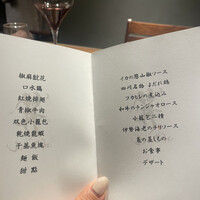 椒麻魷花
口水鶏
紅焼排翅
青椒牛肉
双色小籠包
乾焼龍蝦
干蒸魚塊
麺飯
甜點
イカの怨山椒ソース
四川名物 よだれ鶏
フカヒレの煮込み
和牛のチンジャオロース
小籠包二種
伊勢海老のチリソース
魚の蒸しもの
お食事
デザート